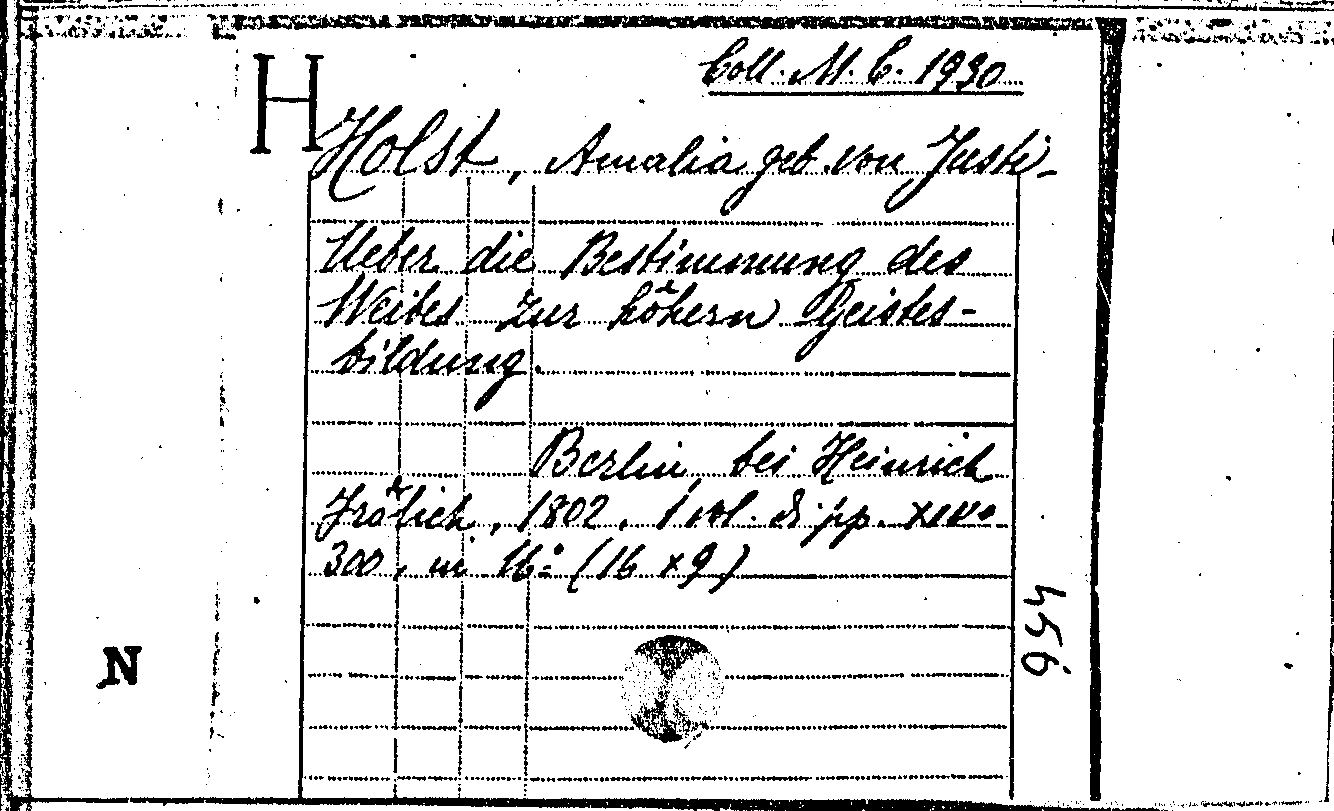 Coll. M. C. 1930
H
Holst, Amalia geb. von Justi-
Ueber die Bestimmung des
Weibes zur höhern Geistes-
bildung.
Berlin, bei Heinrich
Frölich, 1802. 1 vol. di pp.
300, in 16° (16 x 9)
456
N